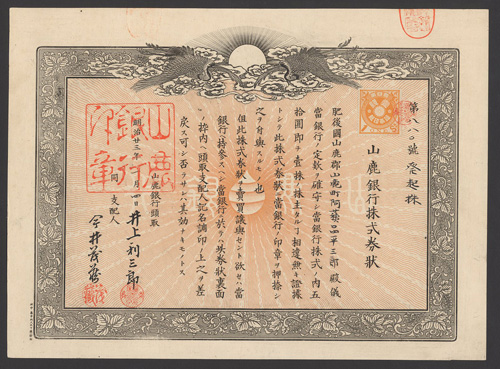 第一八〇號 發起株
山鹿銀行株式券狀
肥後國山鹿郡山鹿町阿藝品平三郎殿儀
當銀行ノ定款ヲ確守シ當銀行株式ノ內五
拾圓即チ壹株ノ株主タル丁相違無キ證據
トシテ此株式券狀ヘ當銀行ノ印章ヲ押捺シ
之ヲ付與スルモノ也
但此株式券狀ヲ賣買讓與セント欲セハ當
銀行ヘ持參スヘシ當銀行ニ於テハ此券狀裏面
ノ枠內ヘ頭取支配人記名調印ノ上之ヲ差
戾ス可シ否ラサレハ其効ナキモノトス
明治廿三年 月 四日
山鹿銀行頭取
井上利三郎
同 支配人
今井茂
山鹿銀行印章